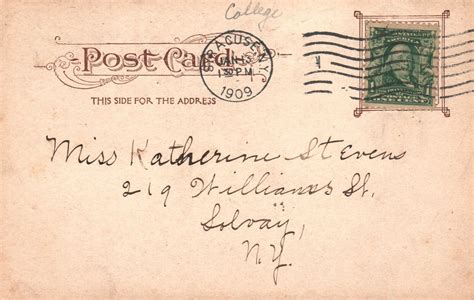 College
POST CARD
SYRACUSE, N.Y.
JAN 13
1 30 PM
1909
THIS SIDE FOR THE ADDRESS
ONE CENT
Miss Katherine Stevens
219 Williams St.
Solvay,
N.Y.